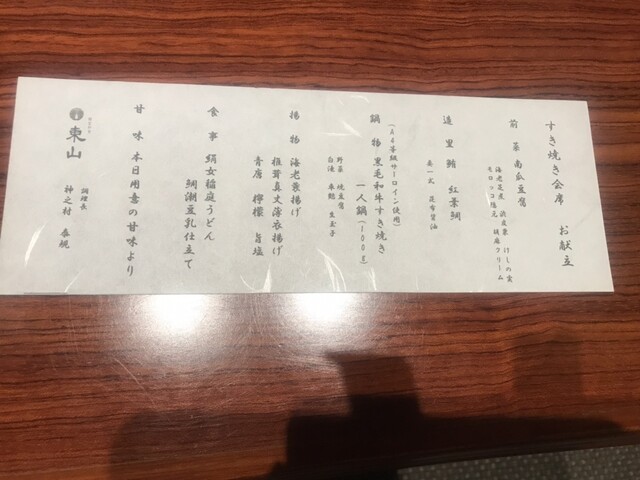 すき焼き会席　お献立
前菜 南瓜豆腐
海老芝煮 渋皮栗 けしの実
モロッコ隠元 胡麻クリーム
造里 鮪 紅葉鯛
あしらい 昆布醤油
(A4等級サーロイン使用)
鍋物 黒毛和牛すき焼き
一人鍋(100g)
野菜 焼豆腐
白滝 車麩 生玉子
揚物 海老蓑揚げ
椎茸真丈薄衣揚げ
青唐 檸檬 旨塩
食事 絹女稲庭うどん
鯛潮豆乳仕立て
甘味 本日用意の甘味より
東山
調理長
神之村